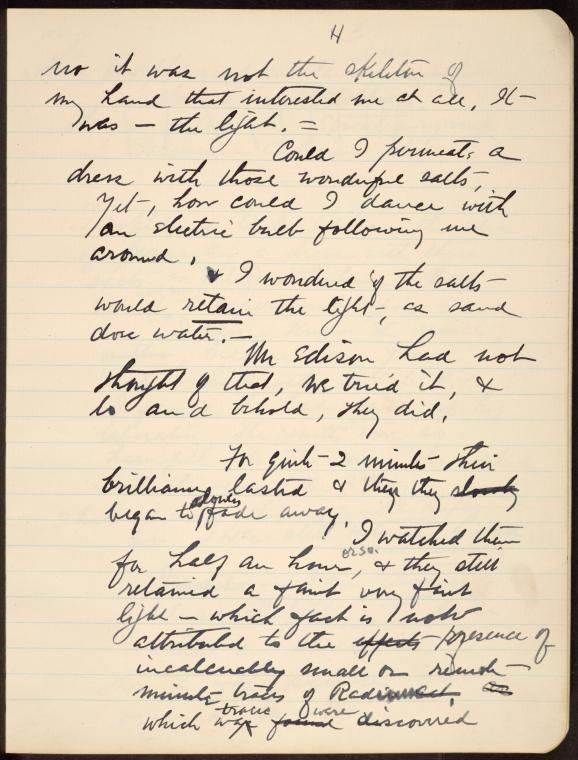 4
no it was not the skeleton of
my hand that interested me at all, It
was — the light. =
Could I permeate a
dress with those wonderful salts,
Yet, how could I dance with
an electric bulb following me
around.
& I wondered if the salts
would retain the light, as sand
does water. —
Mr Edison had not
thought of that, we tried it, &
lo and behold, they did.
For quite 2 minutes their
brilliancy lasted & then they slowly
began to slowly fade away.
I watched them
for half an hour, or so. & they still
retained a faint very faint
light — which fact is now
attributed to the effects presence of
incalculably small or
minute traces of Radium as
which trace was were found discovered